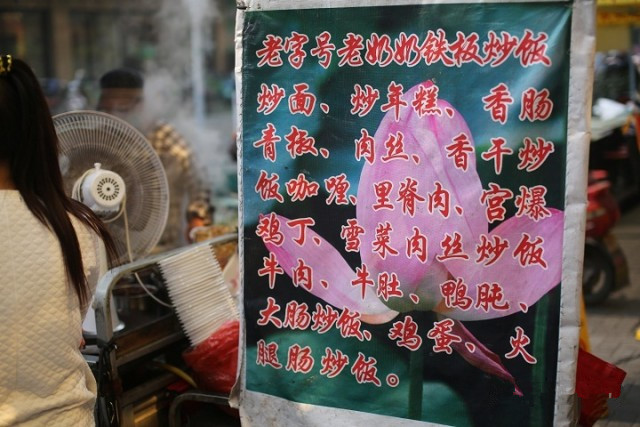 老字号老奶奶铁板炒饭
炒面、炒年糕、香肠
青椒、肉丝、香干炒
饭咖喱、里脊肉、宫爆
鸡丁、雪菜肉丝炒饭
牛肉、牛肚、鸭肫、
大肠炒饭、鸡蛋、火
腿肠炒饭。